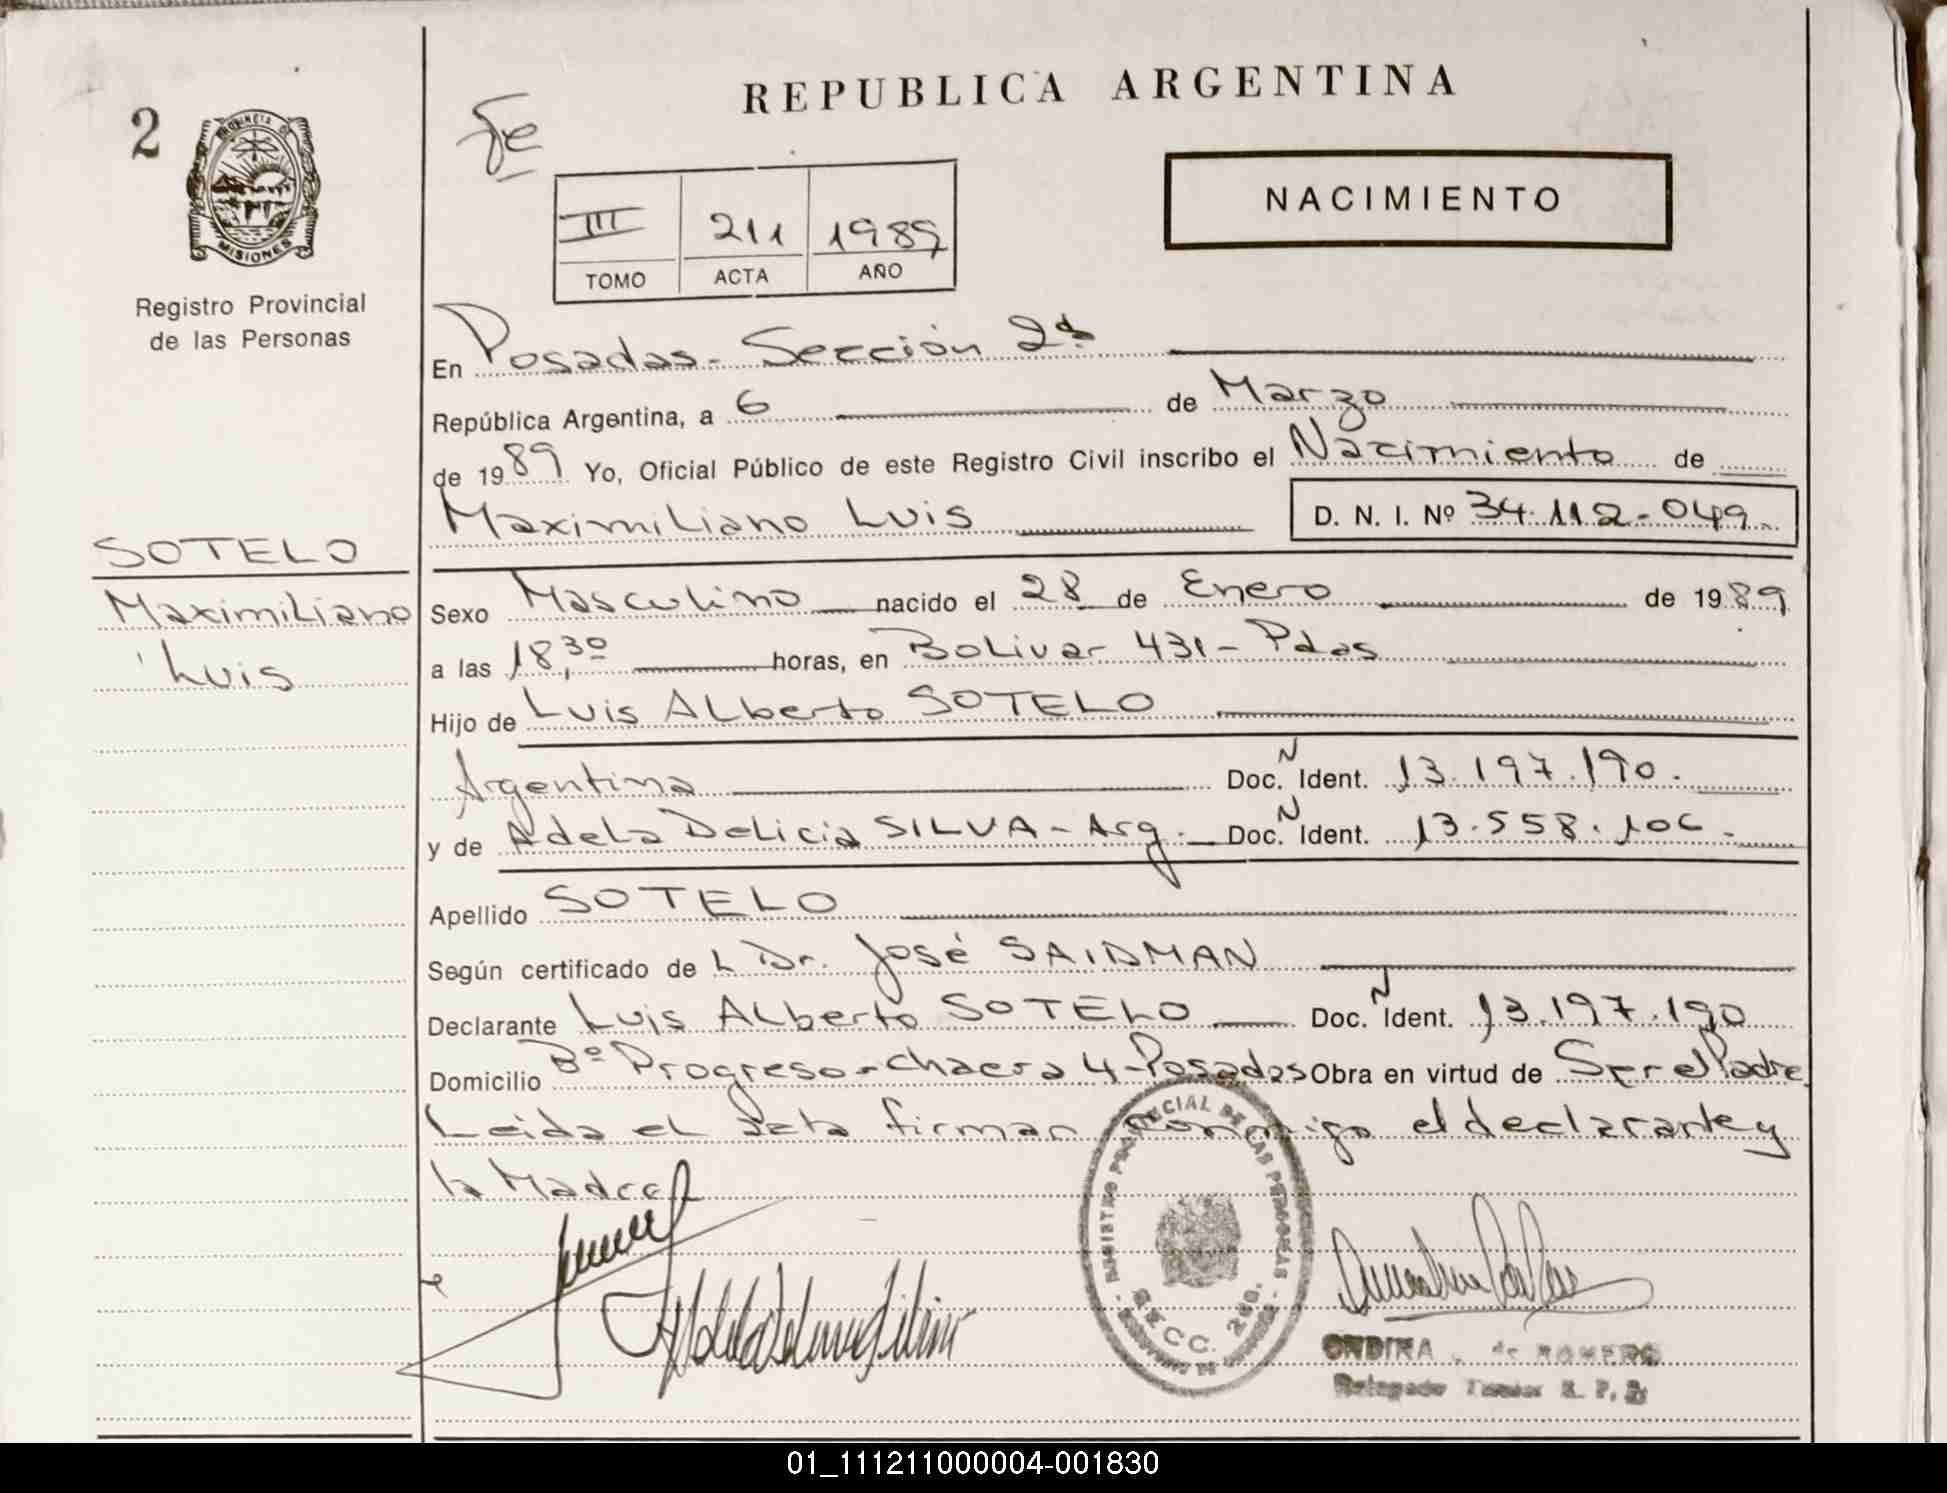 REPUBLICA ARGENTINA
2
PROVINCIA DE
MISIONES
Registro Provincial
de las Personas
NACIMIENTO
III 211 1989
TOMO ACTA AÑO
En Posadas - Sección 2ª
República Argentina, a 6 de Marzo
de 1989 Yo, Oficial Público de este Registro Civil inscribo el Nacimiento de
Maximiliano Luis D. N. I. Nº 34.112-049
SOTELO
Maximiliano
Luis
Sexo Masculino nacido el 28 de Enero de 1989
a las 18,30 horas, en Bolivar 431 - Pdas
Hijo de Luis Alberto SOTELO
Argentina Doc. N Ident. 13.197.190.
y de Adela Delicia SILVA - Arg. Doc. N Ident. 13.558.106 -
Apellido SOTELO
Según certificado de L Dr. José SAIDMAN
Declarante Luis Alberto SOTELO Doc. N Ident. 13.197.190
Domicilio Bº Progreso - chacra 4 - Posadas Obra en virtud de Ser el Padre
Leida el acta firman conmigo el declarante y
la Madre
REGISTRO PROVINCIAL DE LAS PERSONAS
ONDINA de ROMERO
Delegado Titular R. P. P.
01_111211000004-001830